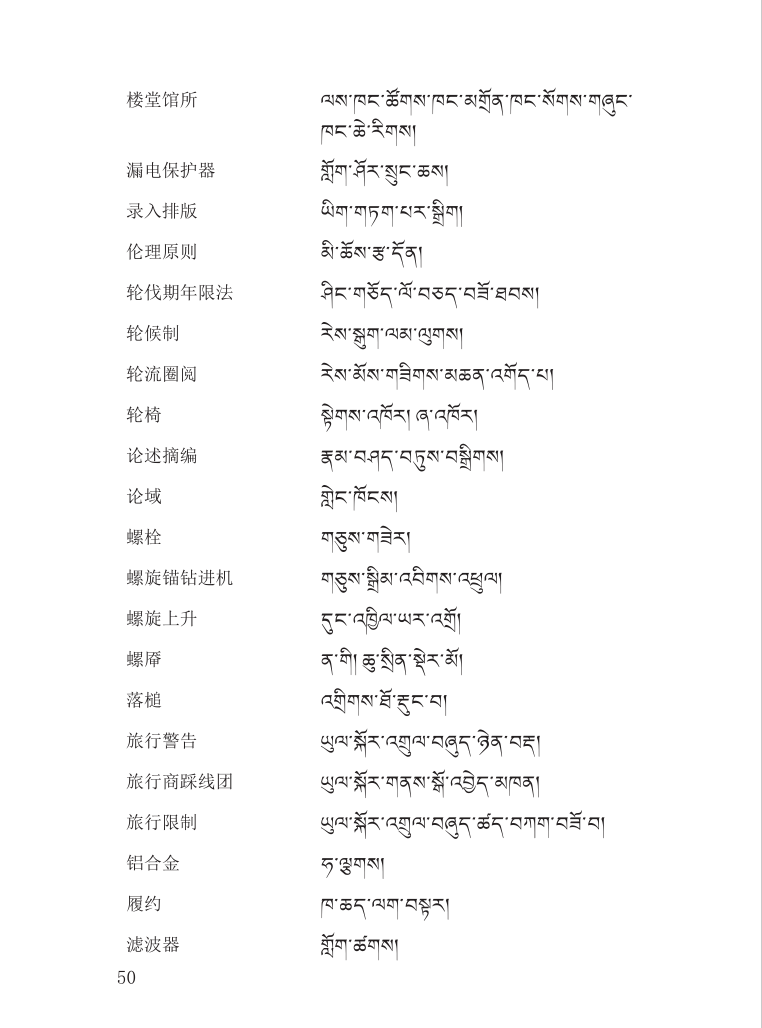 楼堂馆所 ལས་ཁང་ཚོགས་ཁང་མགྲོན་ཁང་སོགས་གཞུང་
ཁང་ཆེ་རིགས།
漏电保护器 གློག་ཤོར་སྲུང་ཆས།
录入排版 ཡིག་གཏག་པར་སྒྲིག།
伦理原则 མི་ཆོས་རྩ་དོན།
轮伐期年限法 ཤིང་གཅོད་ལོ་བཅད་བཟོ་ཐབས།
轮候制 རེས་སྒུག་ལམ་ལུགས།
轮流圈阅 རེས་མོས་གཟིགས་མཆན་འགོད་པ།
轮椅 སྟེགས་འཁོར། ཞ་འཁོར།
论述摘编 རྣམ་བཤད་བཏུས་བསྒྲིགས།
论域 གླེང་ཁོངས།
螺栓 གཅུས་གཟེར།
螺旋锚钻进机 གཅུས་སྒྲིམ་འབིགས་འཕྲུལ།
螺旋上升 དུང་འཁྱིལ་ཡར་འགྲོ།
螺厣 ན་གི། ཆུ་སྲིན་སྡེར་མོ།
落槌 འགྲིགས་ཐོ་རྡུང་བ།
旅行警告 ཡུལ་སྐོར་འགྲུལ་བཞུད་ཉེན་བརྡ།
旅行商踩线团 ཡུལ་སྐོར་གནས་སྒོ་འབྱེད་མཁན།
旅行限制 ཡུལ་སྐོར་འགྲུལ་བཞུད་ཚད་བཀག་བཟོ་བ།
铝合金 ཧ་ལྕགས།
履约 ཁ་ཆད་ལག་བསྟར།
滤波器 གློག་ཚགས།
50